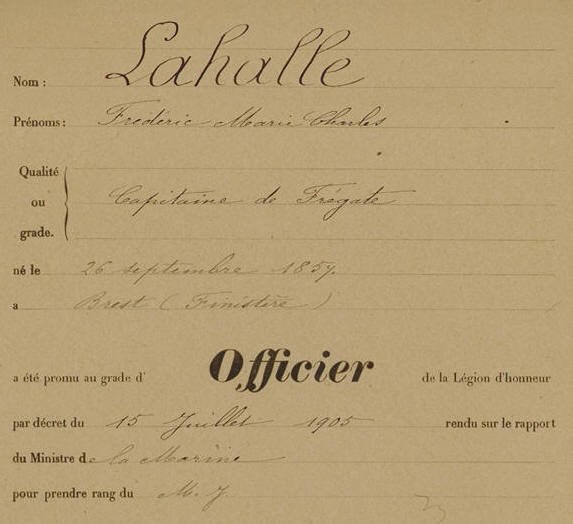 Nom : Lahalle
Prénoms : Frédéric Marie Charles
Qualité
ou
grade. Capitaine de Frégate
né le 26 septembre 1857.
a Brest (Finistère)
a été promu au grade d' Officier de la Légion d'honneur
par décret du 15 Juillet 1905 rendu sur le rapport
du Ministre de la Marine
pour prendre rang du M. J.